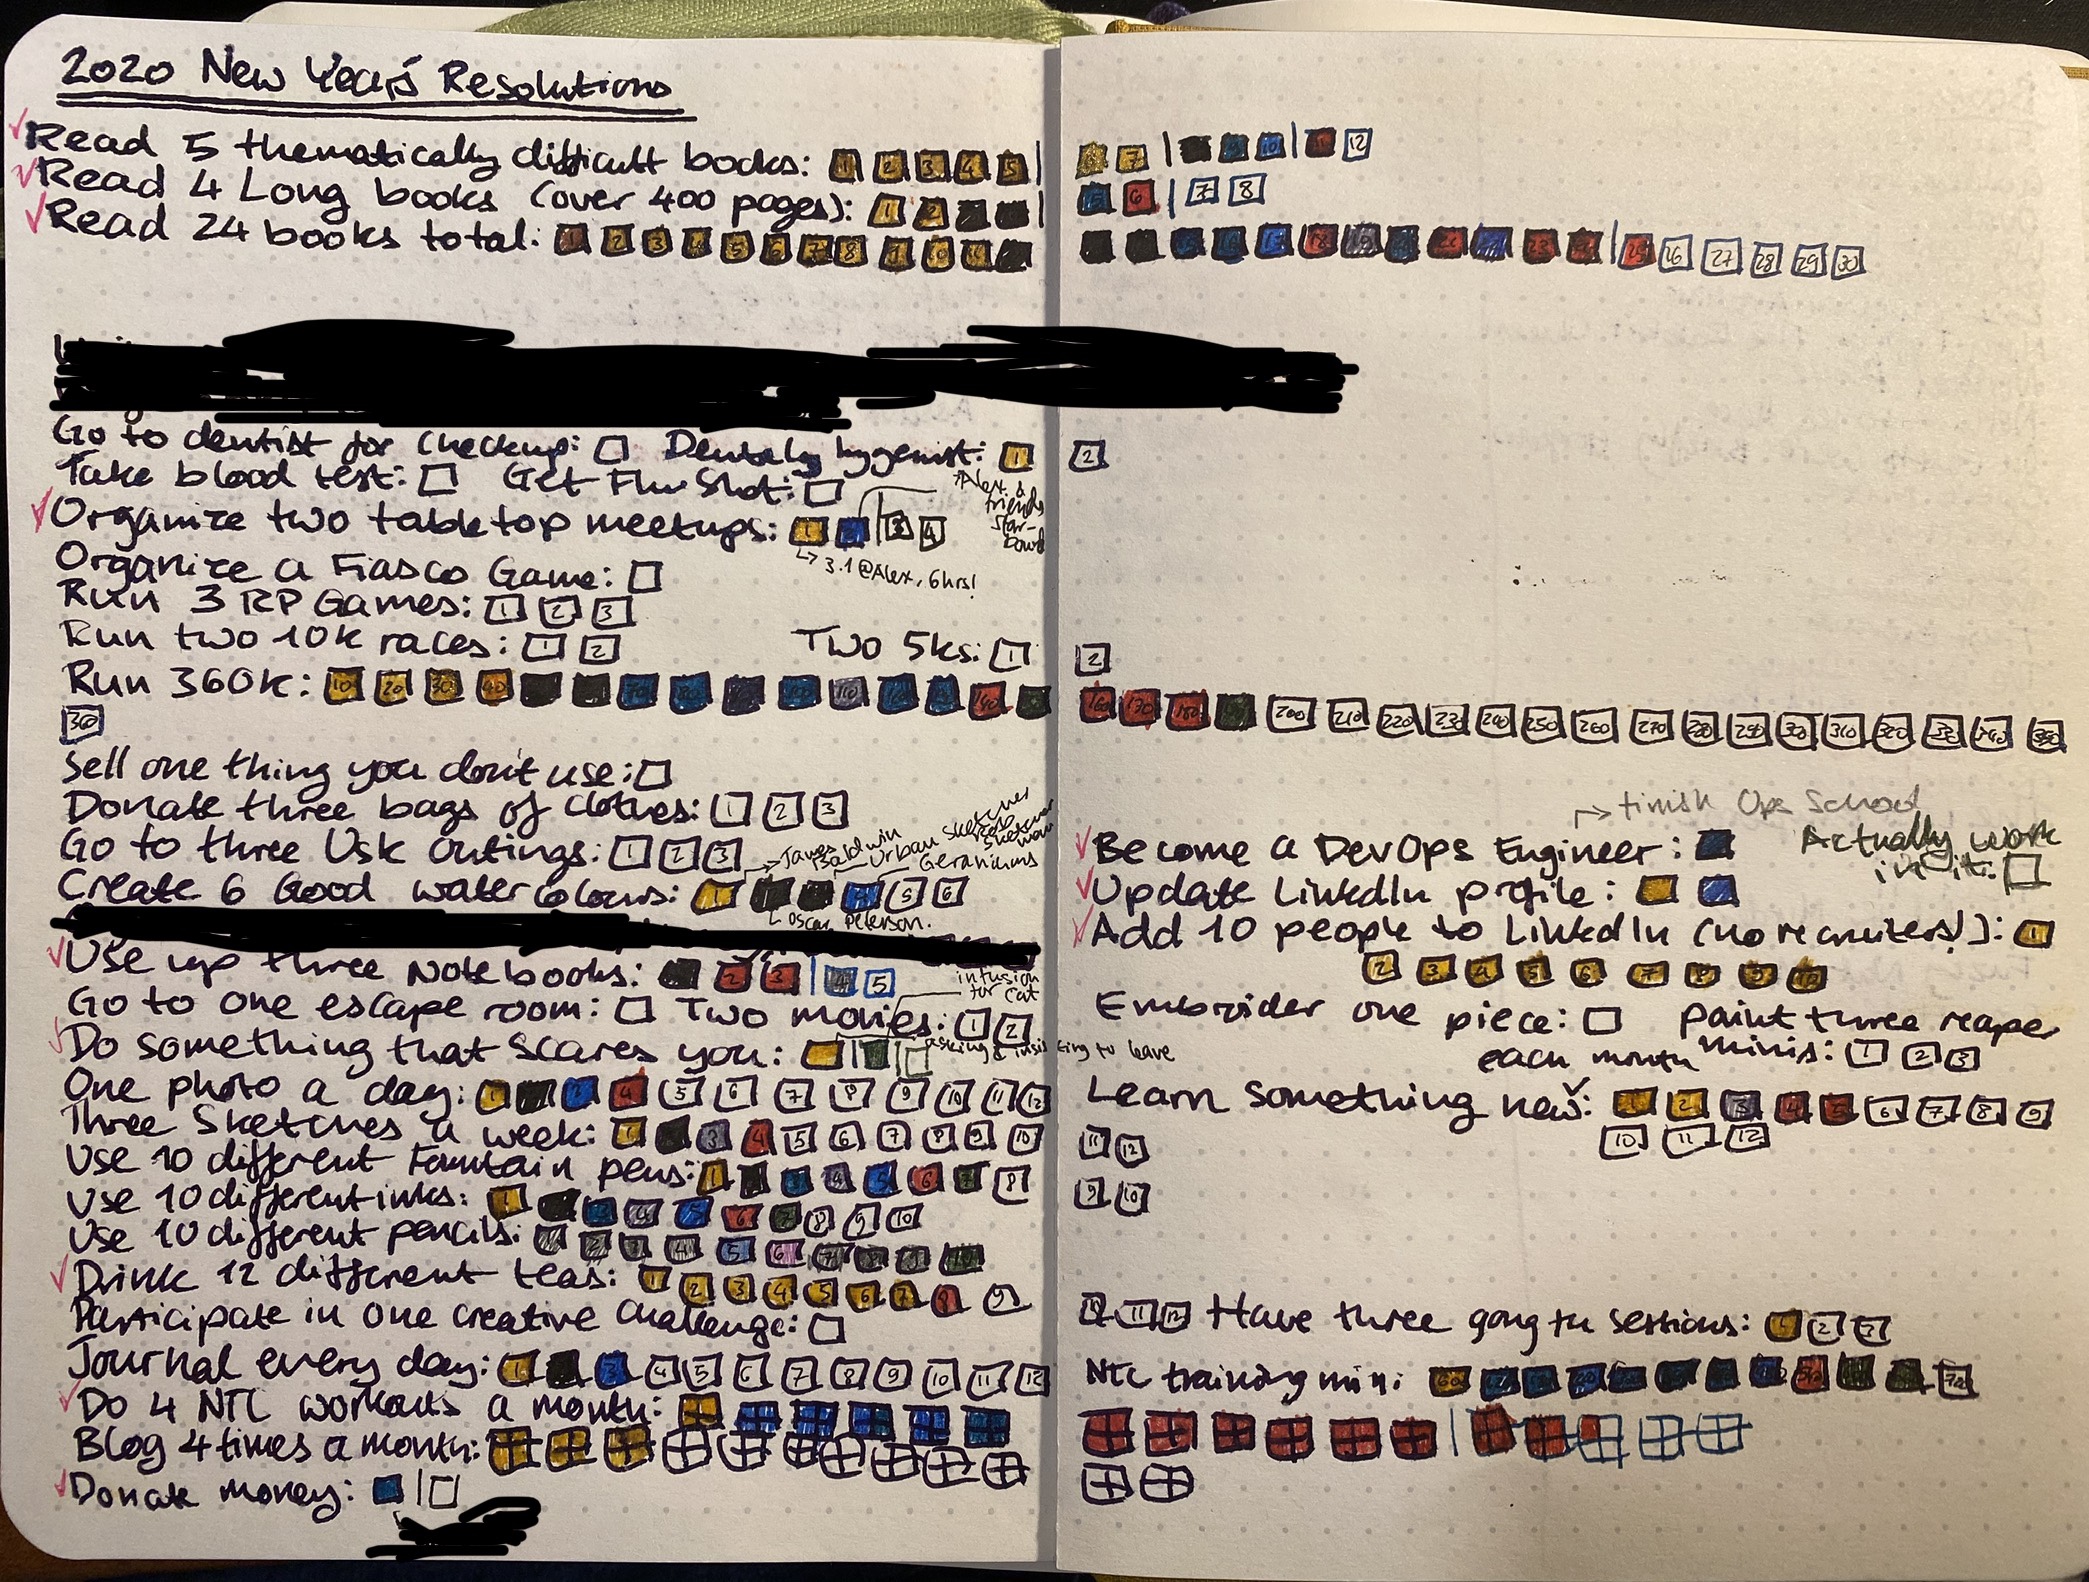 2020 New Year's Resolutions
Read 5 thematically difficult books: 1 2 3 4 5 | 6 7 | 10 | 12
Read 4 Long books (over 400 pages): 1 2 | 5 6 | 7 8
Read 24 books total: 1 2 3 4 5 6 7 8 9 10 11 | 25 26 27 28 29 30
Go to dentist for checkup: Dental hygenist: 1 2
Take blood test: Get Flu Shot:
Alex & friends Star-
Organize two tabletop meetups: 1 2 | 3 4
↳ 3.1 @Alex, 6hrs!
Organize a Fiasco Game:
Run 3 RP Games: 1 2 3
Run two 10k races: 1 2 Two 5ks: 1 2
Run 360k: 10 20 30 40 70 80 100 110 140 160 170 180 200 210 220 230 240 250 260 270 280 290 300 310 320 330 340 350
360
Sell one thing you don't use:
Donate three bags of clothes: 1 2 3
→ finish Ops School
Become a DevOps Engineer: Actually work in it:
Go to three Usk outings: 1 2 3
→ James Baldwin Urban Sketcher
Geraniums
Update LinkedIn profile:
Create 6 Good watercolours: 1 5 6
↳ Oscar Peterson.
Add 10 people to LinkedIn (no recruiters!): 1
2 3 4 5 6 7 8 9 10
Use up three Notebooks: 2 3 | 4 5
infusion for cat
Go to one escape room: Two movies: 1 2
Embroider one piece: paint three reaper minis: 1 2 3
Do something that scares you:
asking & insisting to leave
each month
One photo a day: 1 2 4 5 6 7 8 9 10 11 12
Learn something new: 1 2 3 4 5 6 7 8 9
10 11 12
Three Sketches a week: 1 3 4 5 6 7 8 9 10 11 12
Use 10 different Fountain pens: 1 3 4 5 6 7 8 9 10
Use 10 different inks: 1 4 5 6 7 8 9 10
Use 10 different pencils: 2 3 4 5 6 7 8 9 10
Drink 12 different teas: 1 2 3 4 5 6 7 8 9 10 11 12
Have three gong fu sessions: 1 2 3
Participate in one creative challenge:
Journal every day: 1 3 4 5 6 7 8 9 10 11 12
NTC training min:
Do 4 NTC workouts a month:
Blog 4 times a month:
Donate money: